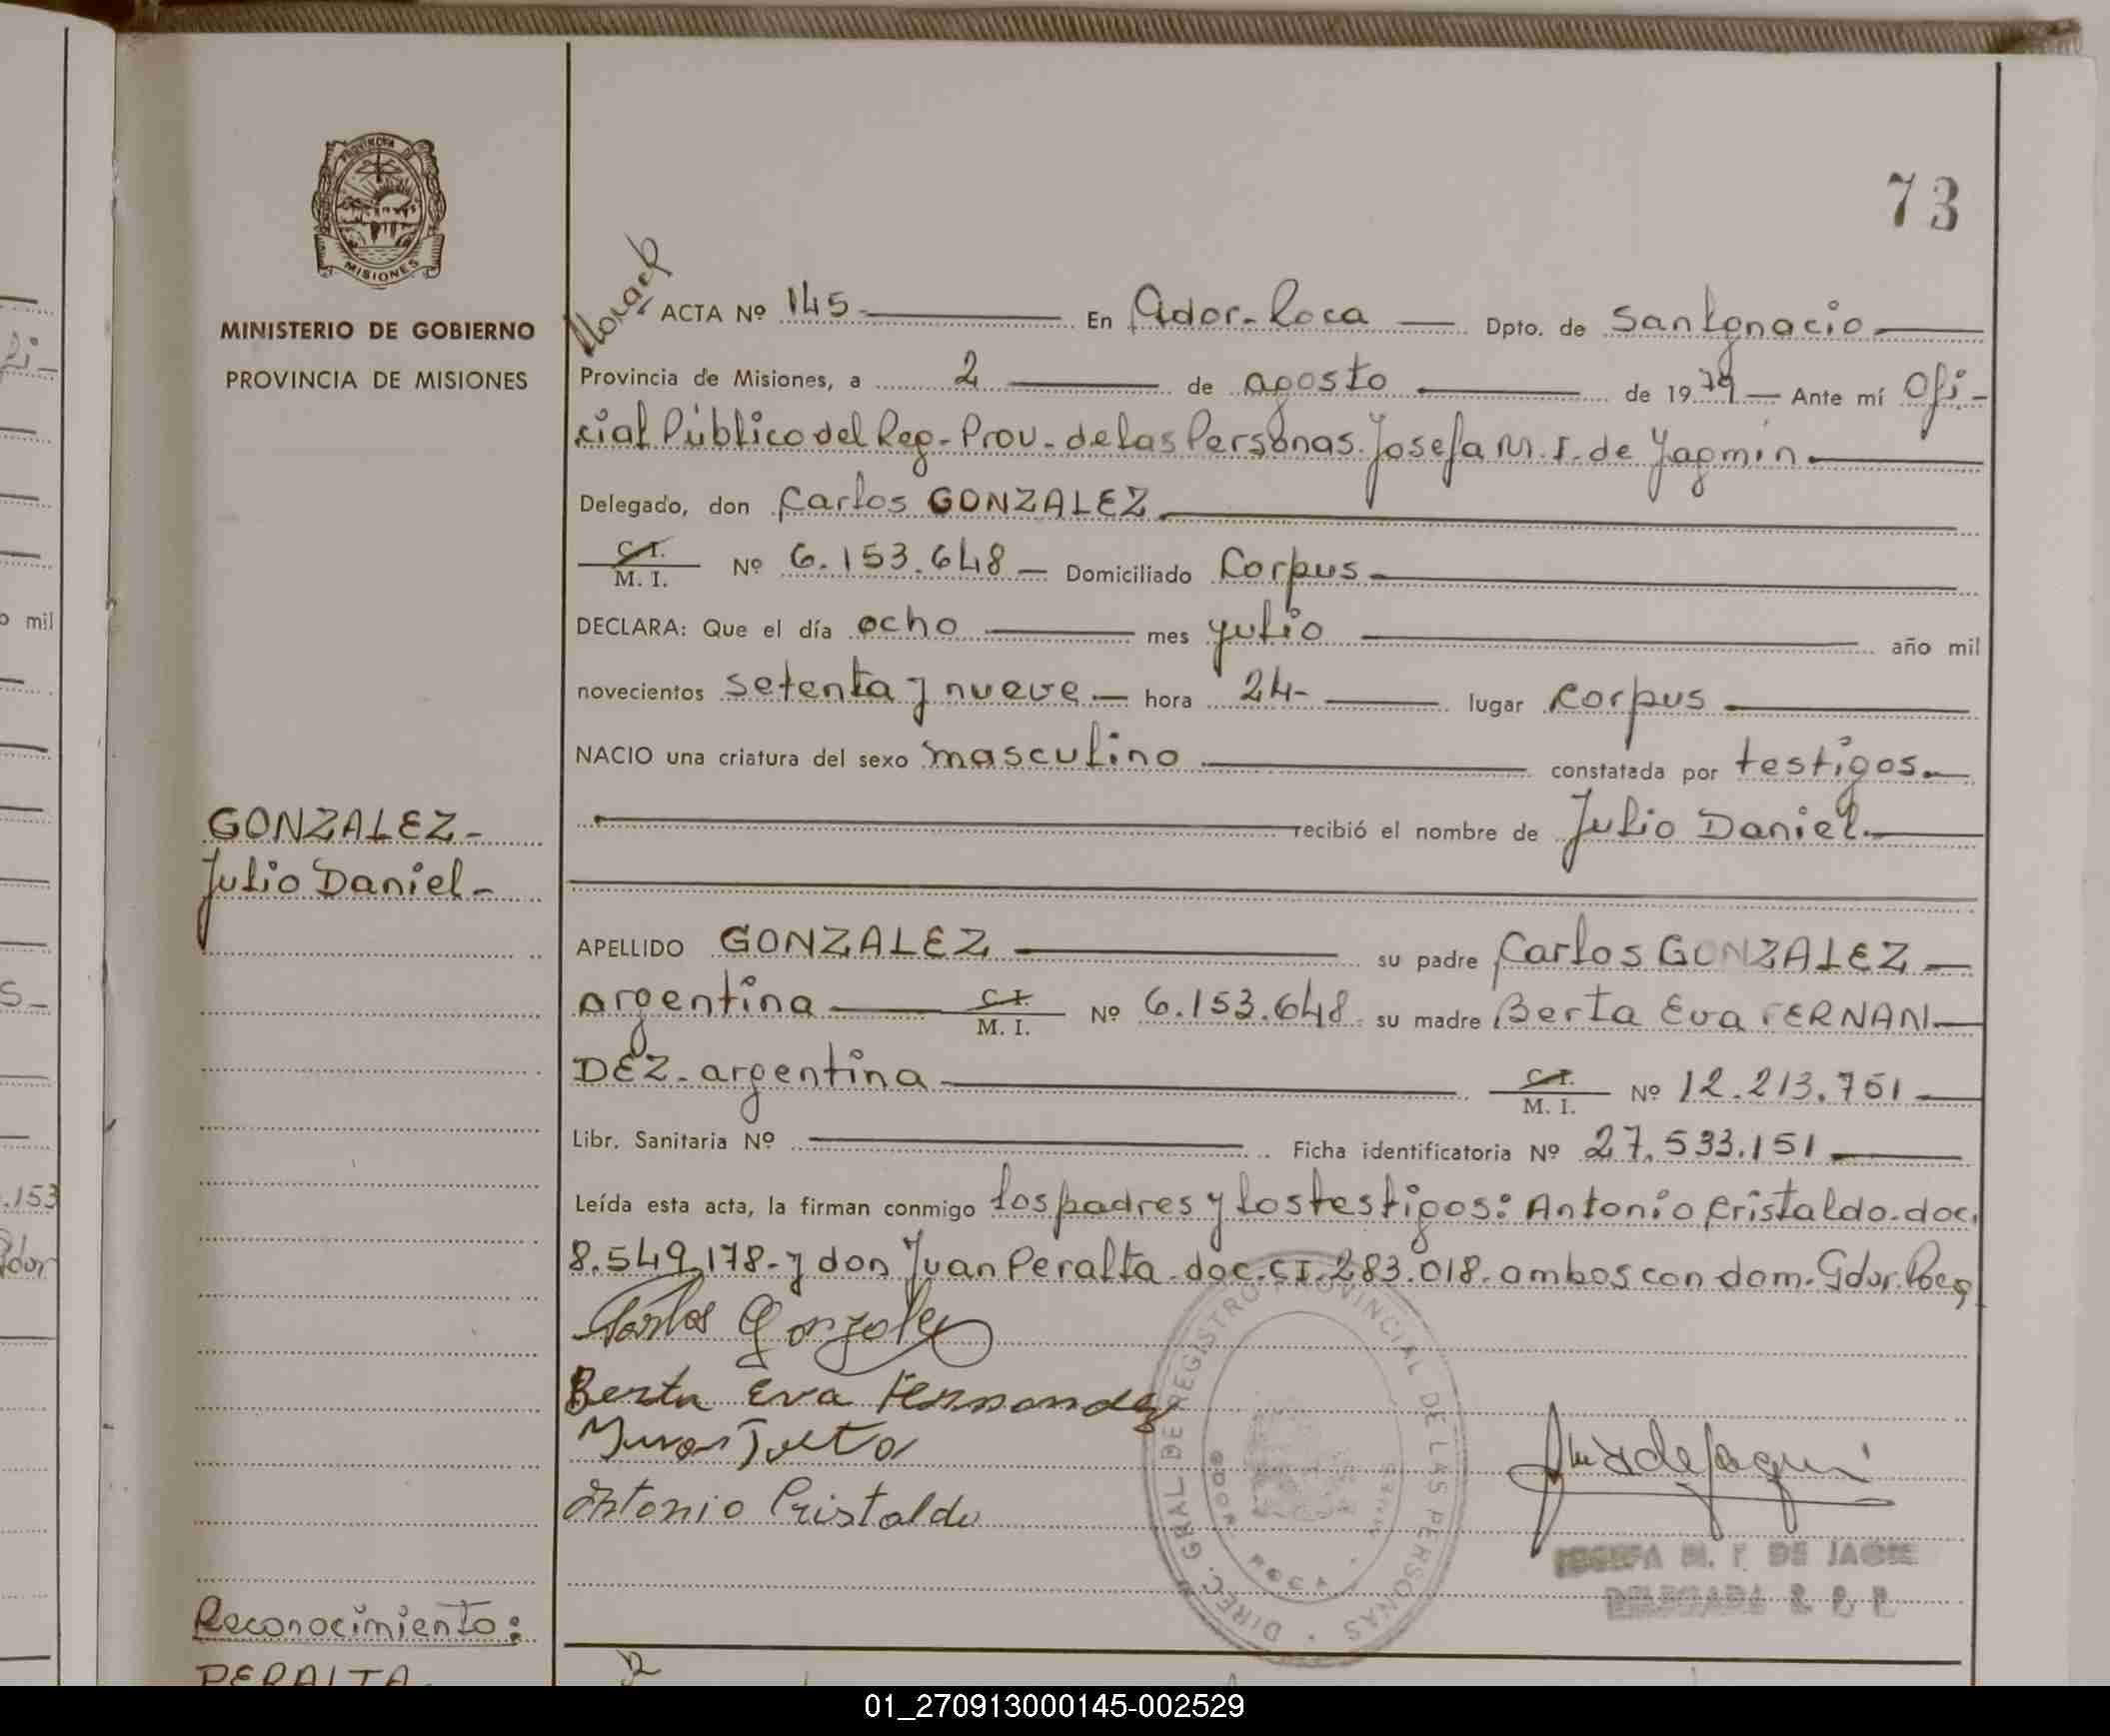 73
PROVINCIA DE
MISIONES
MINISTERIO DE GOBIERNO
PROVINCIA DE MISIONES
ACTA Nº 145 En Gdor. Roca Dpto. de San Ignacio
Provincia de Misiones, a 2 de agosto de 1979 Ante mí Ofi-
cial Público del Reg. Prov. de las Personas. Josefa M. F. de Yagmin
Delegado, don Carlos GONZALEZ
C. I.
M. I. Nº 6.153.648 Domiciliado Corpus
DECLARA: Que el día ocho mes julio año mil
novecientos setenta y nueve hora 24- lugar Corpus
NACIO una criatura del sexo masculino constatada por testigos.
recibió el nombre de Julio Daniel.
GONZALEZ-
Julio Daniel-
APELLIDO GONZALEZ su padre Carlos GONZALEZ
argentina C. I. M. I. Nº 6.153.648 su madre Berta Eva FERNAN
DEZ. argentina C. I. M. I. Nº 12.213.751
Libr. Sanitaria Nº Ficha identificatoria Nº 27.533.151
Leída esta acta, la firman conmigo los padres y los testigos: Antonio Cristaldo. doc.
8.549.178- y don Juan Peralta. doc. CI. 283.018. ambos con dom. Gdor. Roca
Carlos Gonzalez
Berta Eva Fernandez
Antonio Cristaldo
DIREC. GRAL DE REGISTRO PROVINCIAL DE LAS PERSONAS
ROCA
JOSEFA M. F. DE JAGMI
DELEGADA
Reconocimiento:
PERALTA
o mil
.153
Gdor
01_270913000145-002529